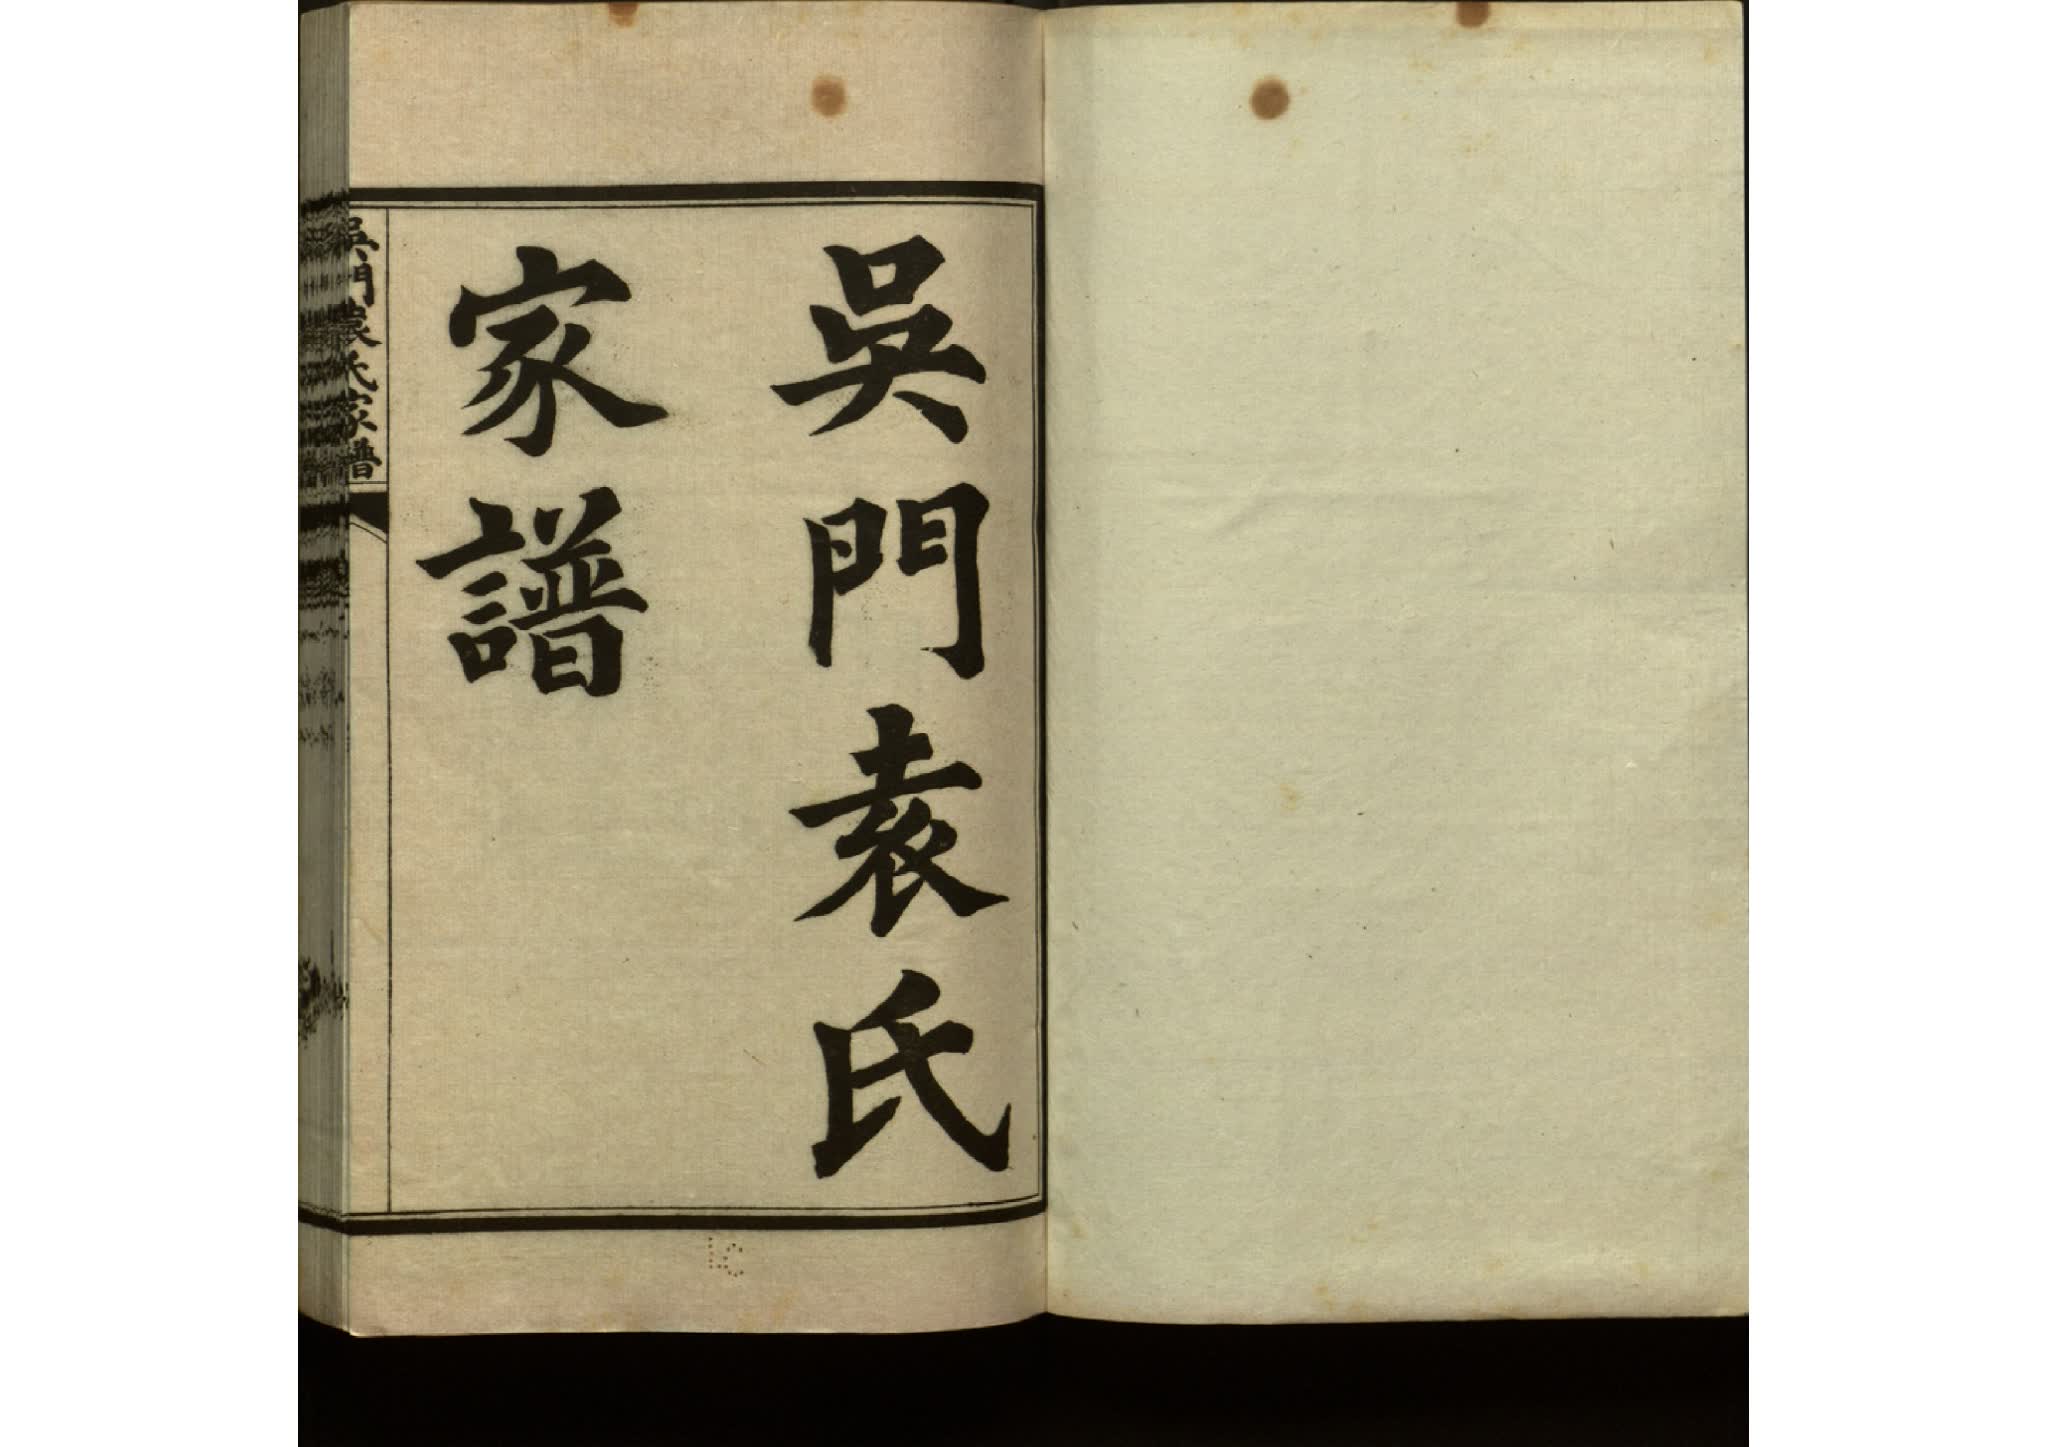 吳門袁氏
家譜
吳門袁氏家譜
LC